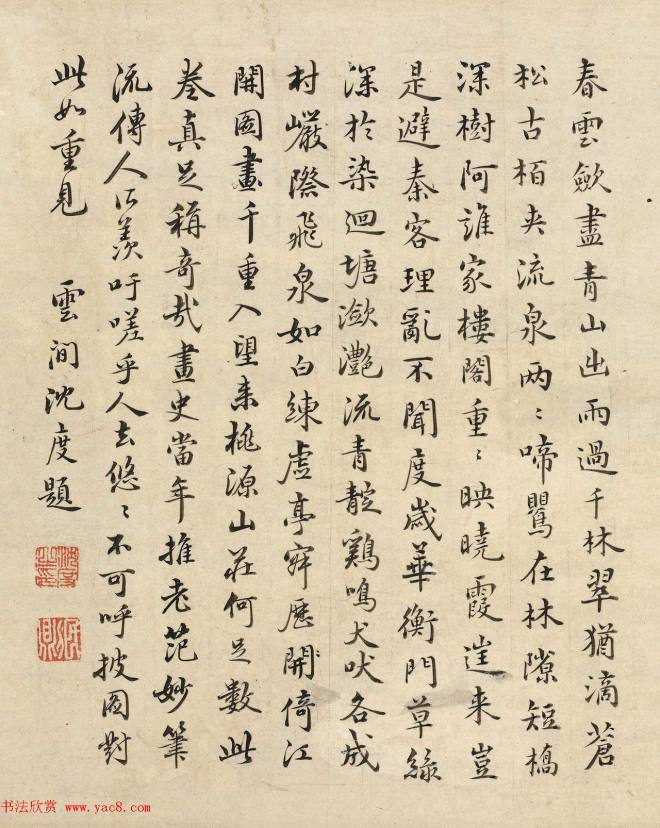 春雲斂盡青山出雨過千林翠猶滴蒼
松古栢夾流泉兩〻啼鶯在林隙短橋
深樹阿誰家樓閣重〻映曉霞遑来豈
是避秦客理亂不聞度歲華衡門草綠
深於染迴塘瀲灩流青靛鷄鳴犬吠各成
村巖際飛泉如白練虛亭寂歷開倚江
開圖畫千重入望来桃源山莊何足數此
卷真足稱奇哉畫史當年推老范妙筆
流傳人所羨吁嗟乎人去悠〻不可呼披圖對
此如重見 雲間沈度題
书法欣赏 www.yac8.com